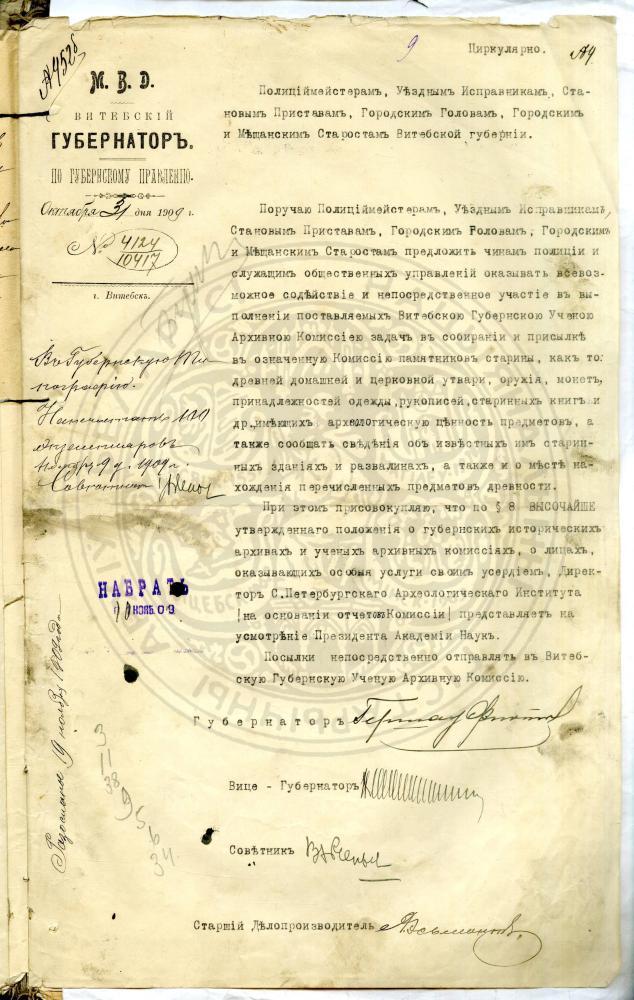 А4528
9
Циркулярно.
А4.
М. В. Д.
ВИТЕБСКІЙ
ГУБЕРНАТОРЪ.
ПО ГУБЕРНСКОМУ ПРАВЛЕНІЮ.
Октября 31 дня 1909 г.
№ 4124
10417
г. Витебскъ.
Полиціймейстерамъ, Уѣзднымъ Исправникамъ, Ста-
новымъ Приставамъ, Городскимъ Головамъ, Городскимъ
и Мѣщанскимъ Старостамъ Витебской губерніи.
Поручаю Полиціймейстерамъ, Уѣзднымъ Исправникамъ,
Становымъ Приставамъ, Городскимъ Головамъ, Городскимъ
и Мѣщанскимъ Старостамъ предложить чинамъ полиціи и
служащимъ общественныхъ управленій оказывать всевоз-
можное содѣйствіе и непосредственное участіе въ вы-
полненіи поставляемыхъ Витебскою Губернскою Ученою
Архивною Комиссіею задачъ въ собираніи и присылкѣ
въ означенную Комиссію памятниковъ старины, какъ то:
древней домашней и церковной утвари, оружія, монетъ,
принадлежностей одежды, рукописей, старинныхъ книгъ и
др. имѣющихъ археологическую цѣнность предметовъ, а
также сообщать свѣдѣнія объ извѣстныхъ имъ старин-
ныхъ зданіяхъ и развалинахъ, а также и о мѣстѣ на-
хожденія перечисленныхъ предметовъ древности.
При этомъ присовокупляю, что по § 8 ВЫСОЧАЙШЕ
утвержденнаго положенія о губернскихъ историческихъ
архивахъ и ученыхъ архивныхъ комиссіяхъ, о лицахъ,
оказывающихъ особыя услуги своимъ усердіемъ, Дирек-
торъ С.Петербургскаго Археологическаго Института
/на основаніи отчетовъ Комиссіи/ представляетъ на
усмотрѣніе Президента Академіи Наукъ.
Посылки непосредственно отправлять въ Витеб-
скую Губернскую Ученую Архивную Комиссію.
Губернаторъ
Вице - Губернаторъ
Совѣтникъ
Старшій Дѣлопроизводитель
Въ Губернскую Ти-
пографію.
Напечатать 120
экземпляровъ
Ноября 9 д. 1909 г.
Совѣтникъ
НАБРАТЬ
10 НОЯБ. 09
Разослано 19 ноября 1909 года
3
11
38
9
5
6
34